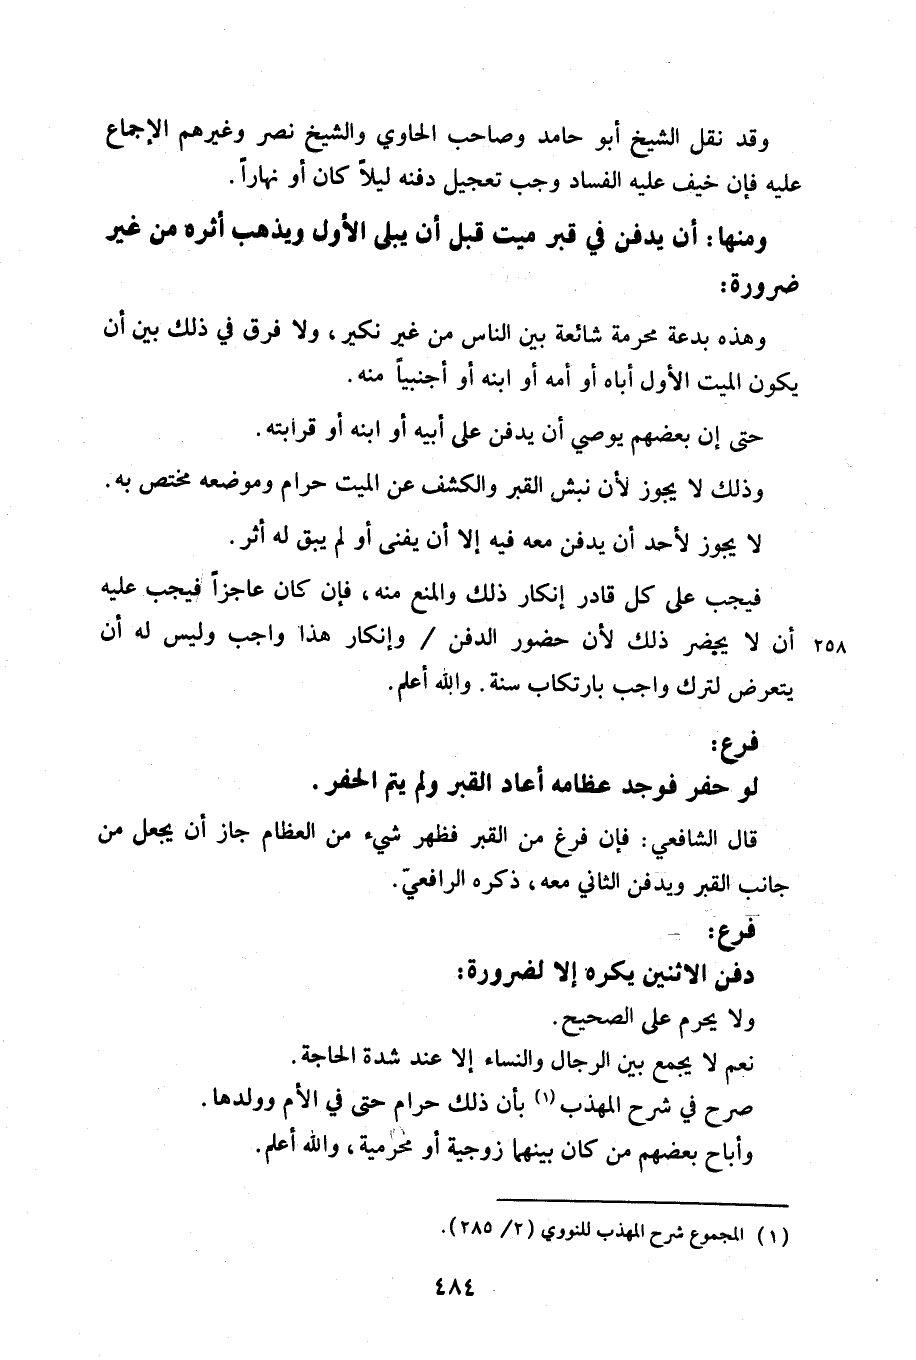 وقد نقل الشيخ أبو حامد وصاحب الحاوي والشيخ نصر وغيرهم الإجماع
عليه فإن خيف عليه الفساد وجب تعجيل دفنه ليلاً كان أو نهاراً.
ومنها: أن يدفن في قبر ميت قبل أن يبلى الأول ويذهب أثره من غير
ضرورة:
وهذه بدعة محرمة شائعة بين الناس من غير نكير، ولا فرق في ذلك بين أن
يكون الميت الأول أباه أو أمه أو ابنه أو أجنبياً منه.
حتى إن بعضهم يوصي أن يدفن على أبيه أو ابنه أو قرابته.
وذلك لا يجوز لأن نبش القبر والكشف عن الميت حرام وموضعه مختص به.
لا يجوز لأحد أن يدفن معه فيه إلا أن يفنى أو لم يبق له أثر.
فيجب على كل قادر إنكار ذلك والمنع منه، فإن كان عاجزاً فيجب عليه
٢٥٨ أن لا يحضر ذلك لأن حضور الدفن / وإنكار هذا واجب وليس له أن
يتعرض لترك واجب بارتكاب سنة. والله أعلم.
فرع:
لو حفر فوجد عظامه أعاد القبر ولم يتم الحفر.
قال الشافعي: فإن فرغ من القبر فظهر شيء من العظام جاز أن يجعل من
جانب القبر ويدفن الثاني معه، ذكره الرافعيّ.
فرع:
دفن الاثنين يكره إلا لضرورة:
ولا يحرم على الصحيح.
نعم لا يجمع بين الرجال والنساء إلا عند شدة الحاجة.
صرح في شرح المهذب (١) بأن ذلك حرام حتى في الأم وولدها.
وأباح بعضهم من كان بينهما زوجية أو محرمية، والله أعلم.
(١) المجموع شرح المهذب للنووي (٢/ ٢٨٥).
٤٨٤